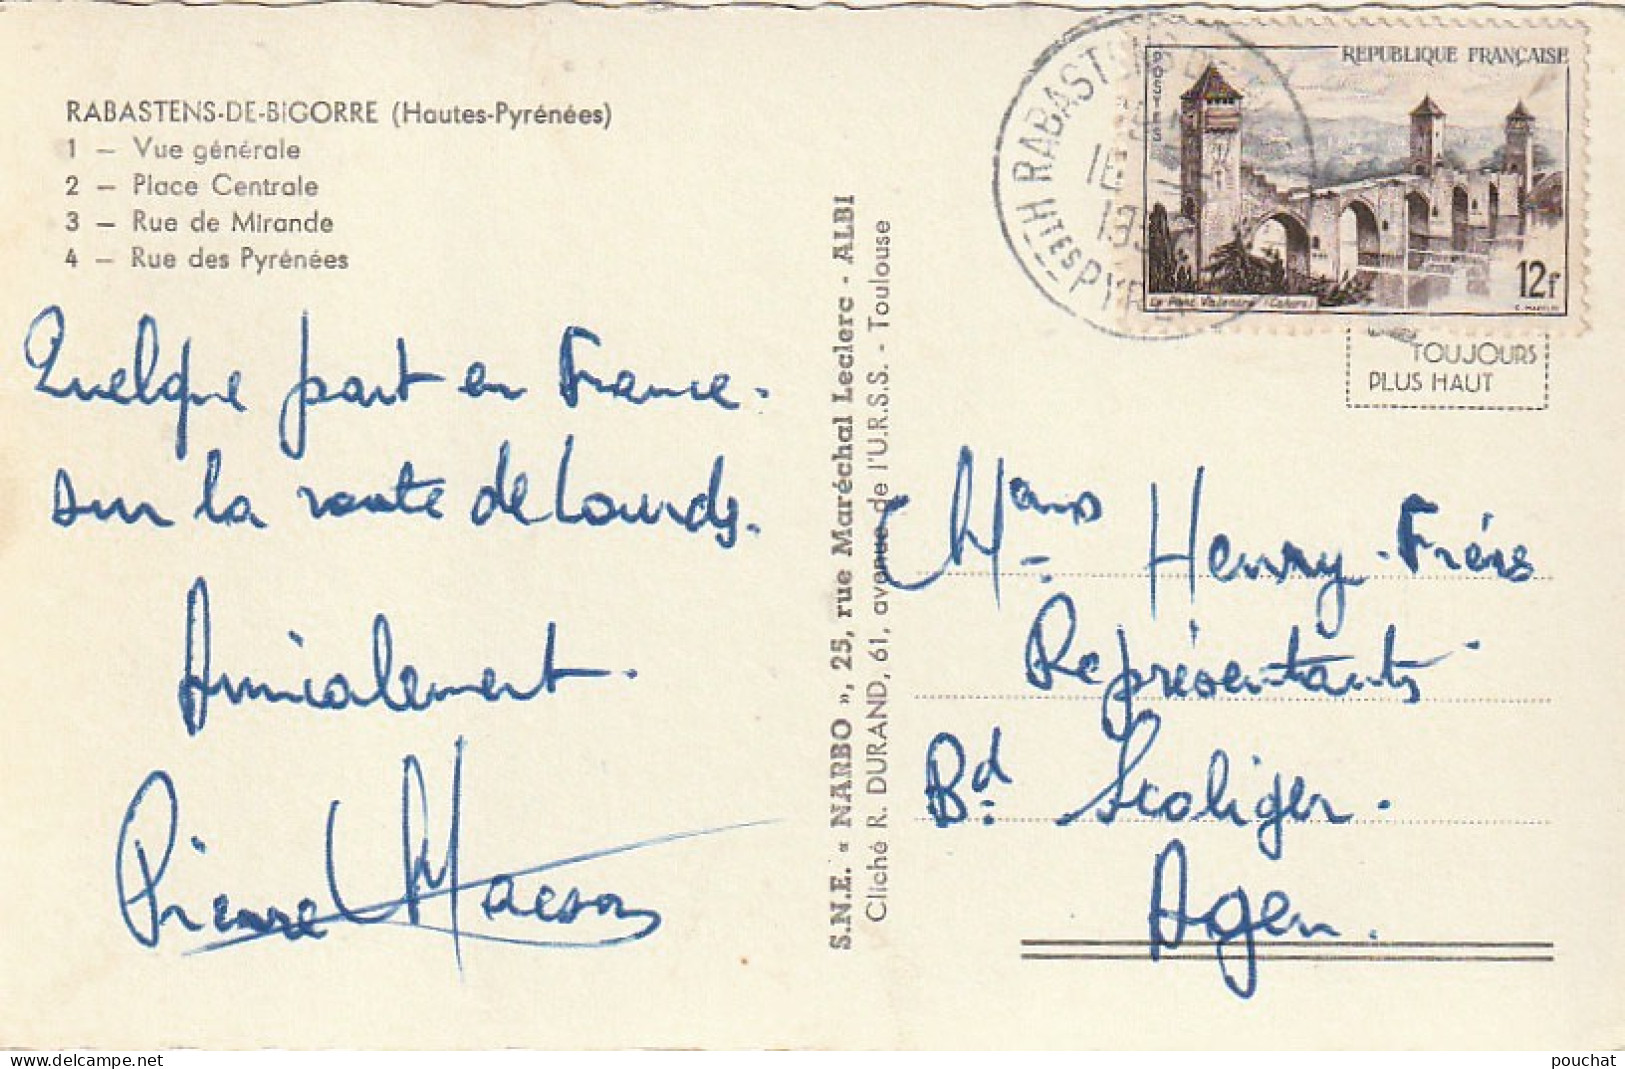 RABASTENS-DE-BIGORRE (Hautes-Pyrénées)
1 — Vue générale
2 — Place Centrale
3 — Rue de Mirande
4 — Rue des Pyrénées
Quelque part en France.
sur la route de Lourdes.
Amicalement.
Pierre
S.N.E. « NARBO », 25, rue Maréchal Leclerc - ALBI
Cliché R. DURAND, 61, avenue de l'U.R.S.S. - Toulouse
RABASTENS DE
HTES PYR
REPUBLIQUE FRANÇAISE
POSTES
Le Pont Valentré (Cahors)
12f
TOUJOURS
PLUS HAUT
Henry-Frères
Représentants
Bd Scaliger.
Agen.
www.delcampe.net
pouchat